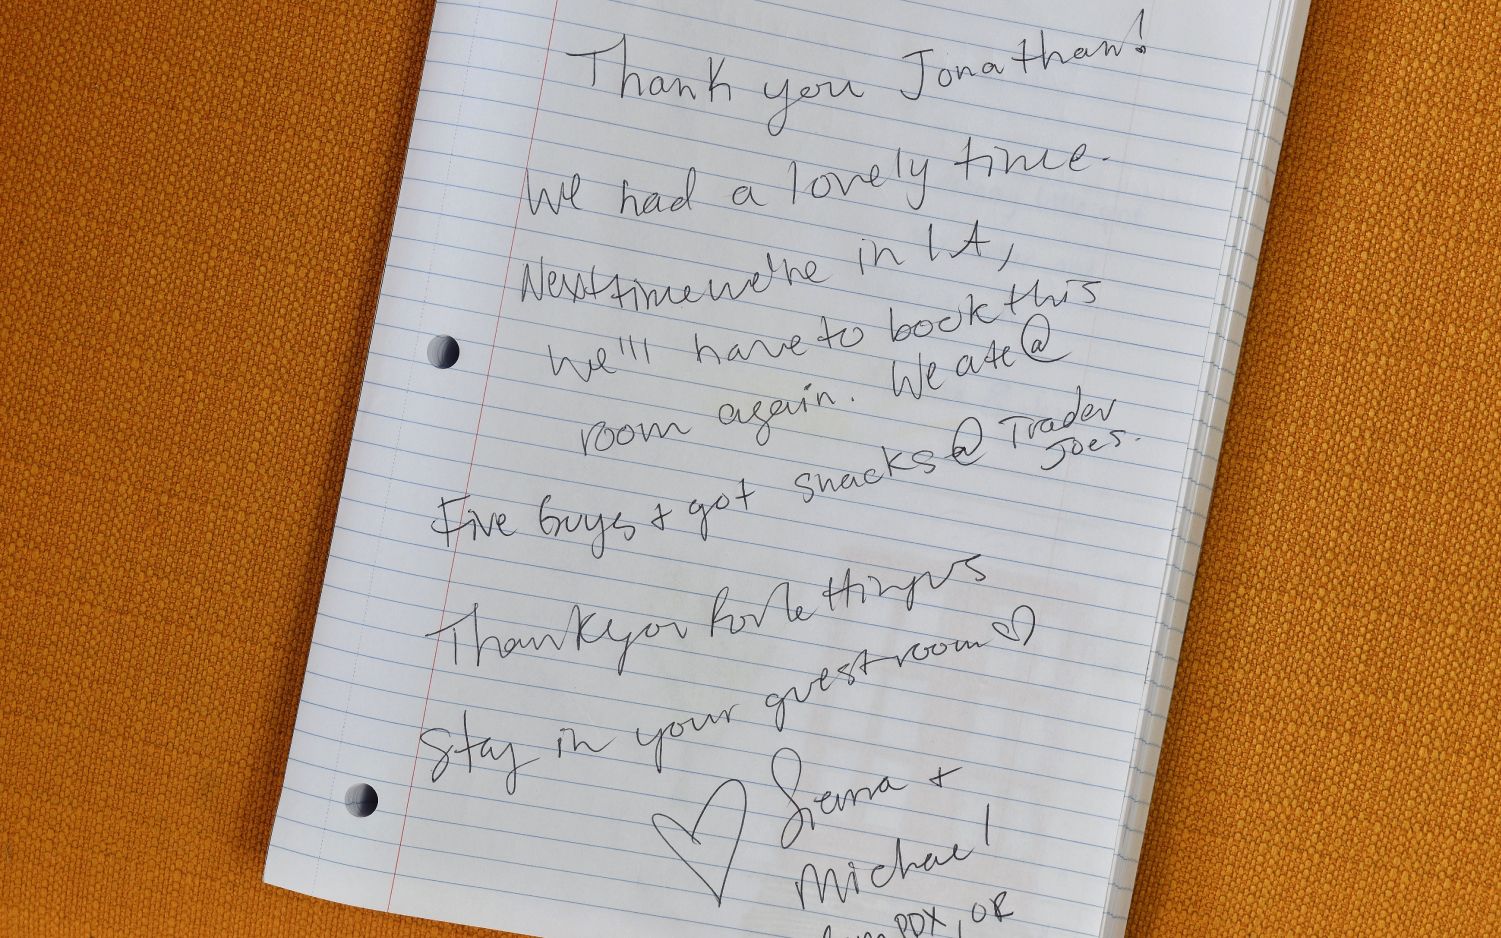 Thank you Jonathan!
We had a lovely time.
Next time we're in LA,
we'll have to book this
room again. We ate @
Five Guys + got snacks @ Trader
Joes.
Thank you for letting us
stay in your guest room ♡
♡ Sierra +
Michael
from PDX, OR